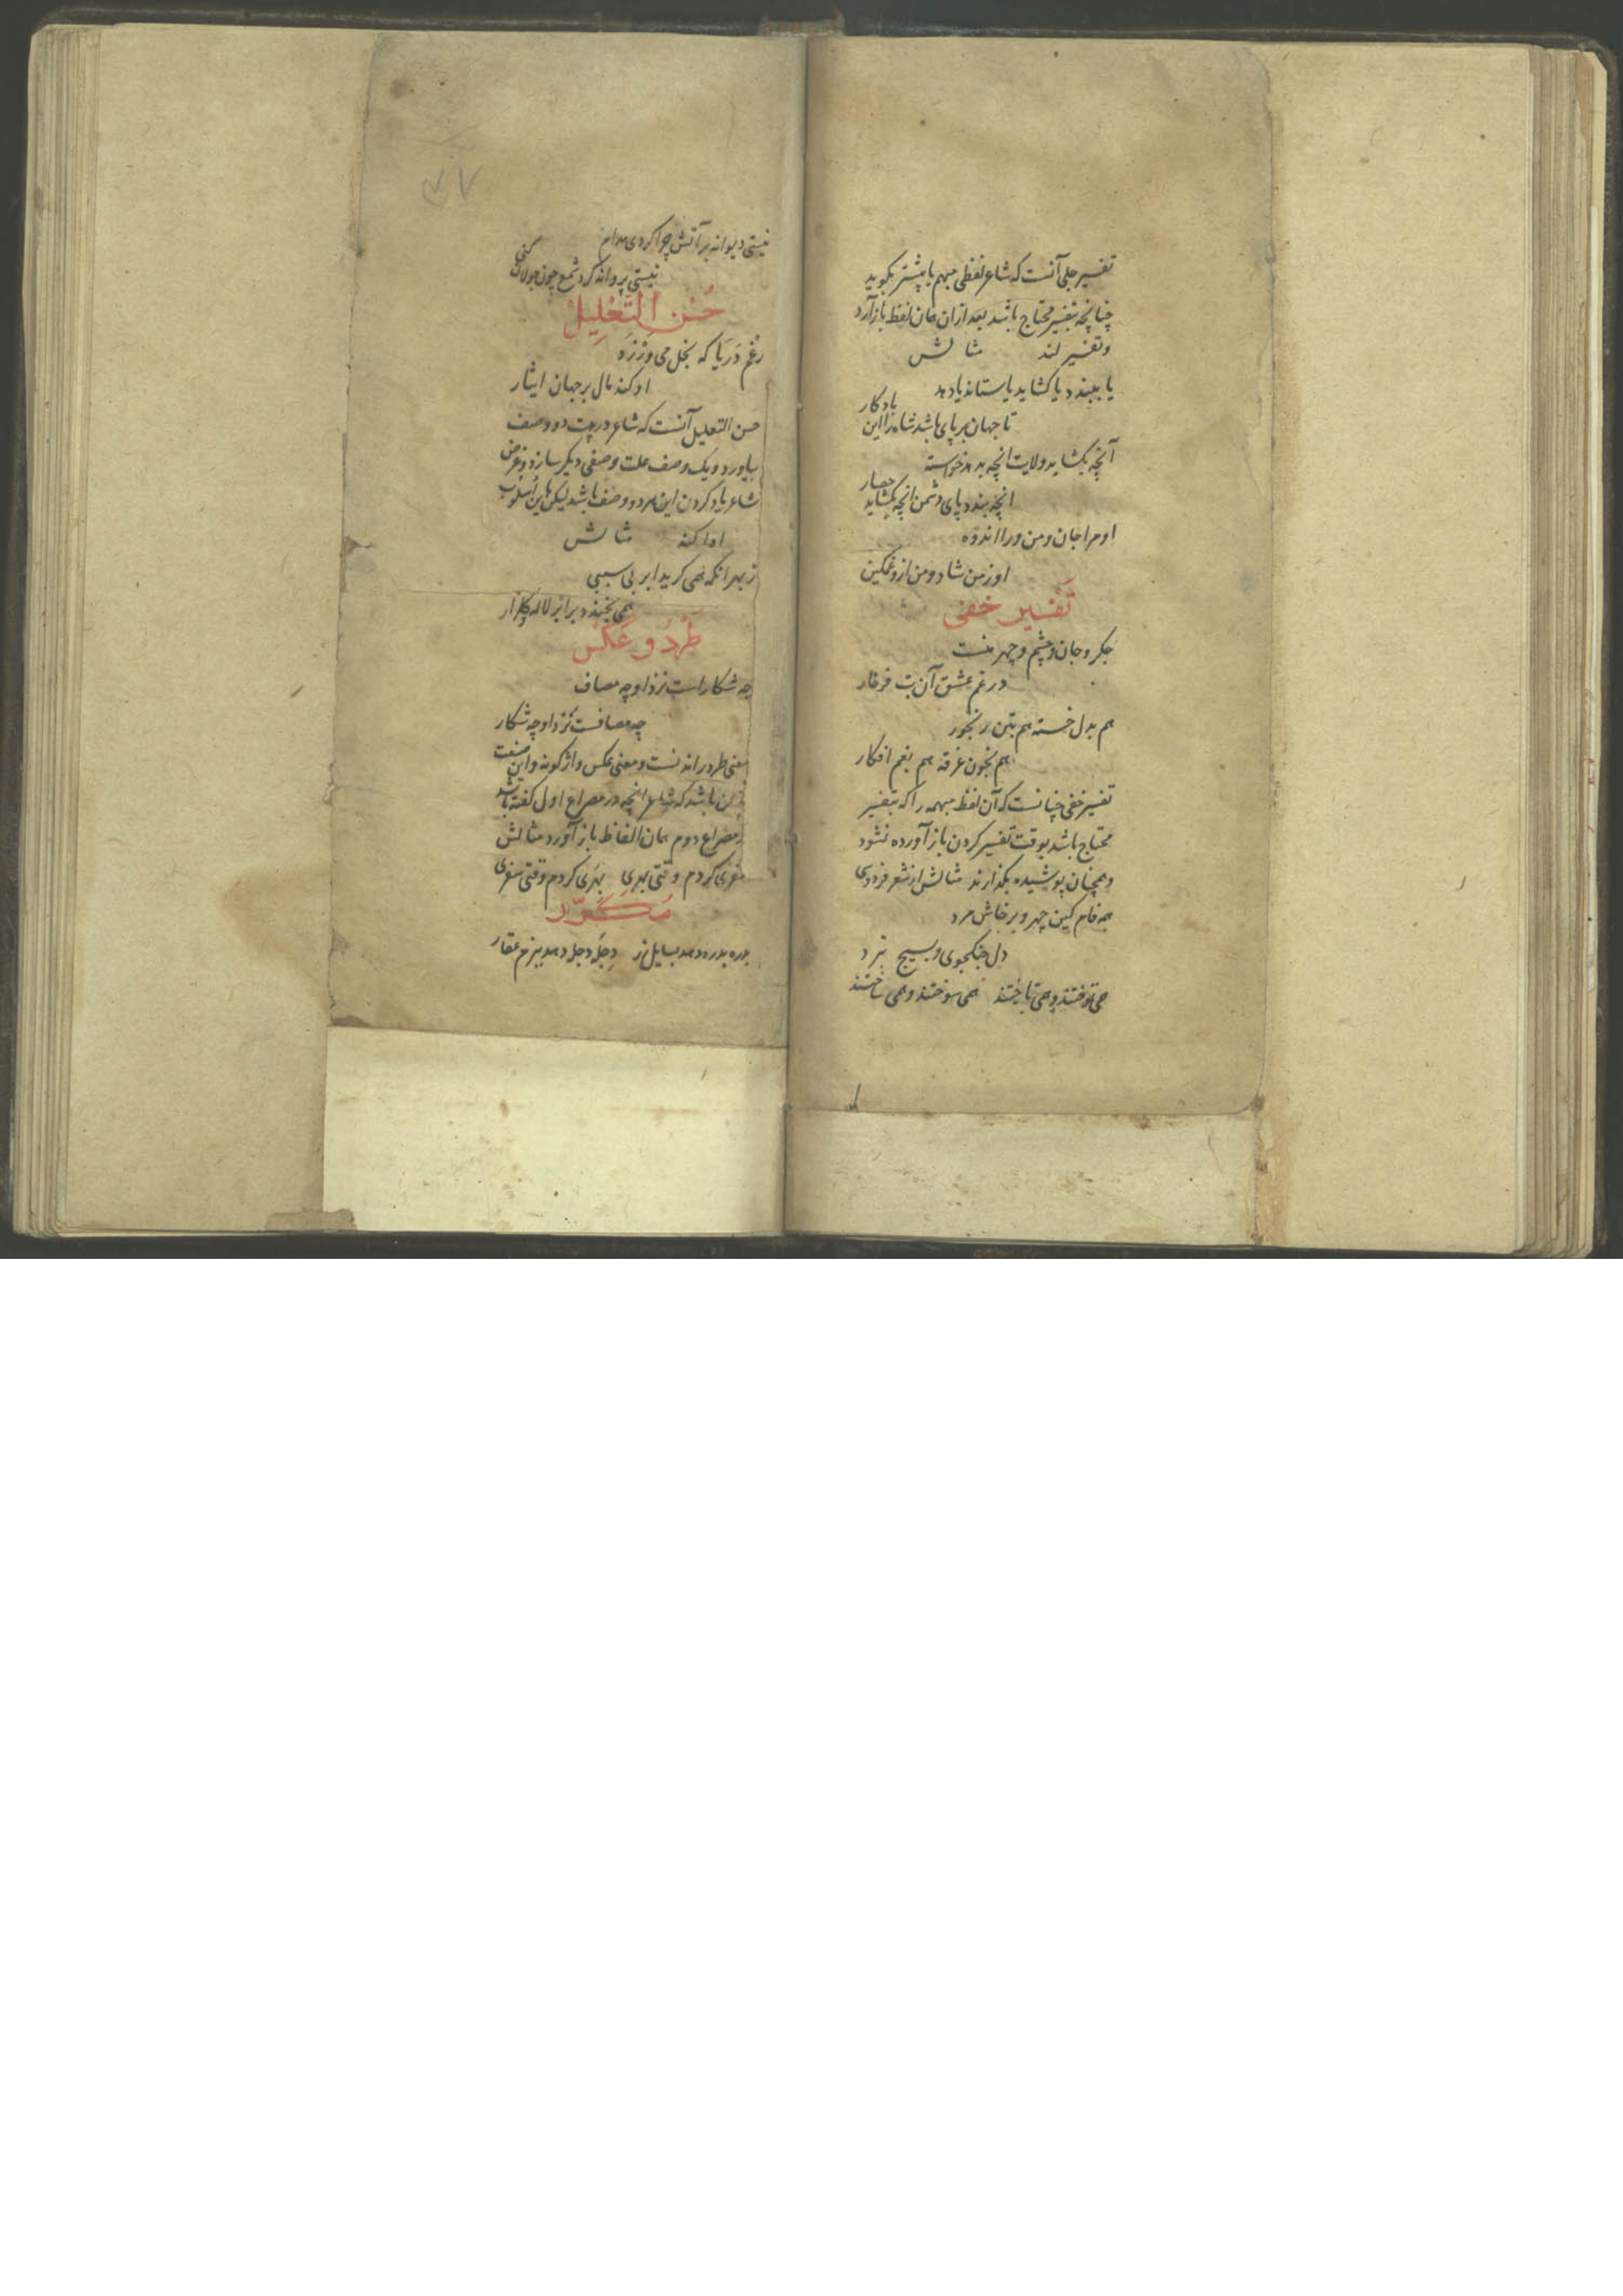 تفسیر جلی آنست که شاعر لفظی مبهم یا بیشتر بکوید
چنانچه بتفسیر محتاج باشد بعد ازان همان لفظ باز آرد
و تفسیر کند مثالش
یا ببندد یا کشاید یا ستاند یا دهد
تا جهان بر پای باشد شاه را این یادکار
آنچه بکشاید ولایت انچه بدهد خواسته
انچه بندد پای دشمن انچه بکشاید حصار
او مرا جان و من ورا اندوه
او ز من شاد و من ازو غمکین
تفسیر خفی
جکر و جان و چشم و چهر منست
در غم عشق آن بت فرخار
هم بدل خسته هم بتن رنجور
هم بخون غرقه هم بغم افکار
تفسیر خفی چنانست که آن لفظ مبهمه را که بتفسیر
محتاج باشد بوقت تفسیر کردن باز آورده نشود
و همچنان پوشیده بکذارند مثالش از شعر فردوسی
همه فام کین چهر و پرخاش مرد
دل جنکجوی و بسیج نبرد
همی توختند و همی تاختند همی سوختند و همی ساختند
۷۷
نیستی دیوانه بر آتش چرا کردی مدام
نیستی پروانه کرد شمع چون جولان کنی
حُسْنِ التَّعْلِیلْ
رغم دریا که بخل می ورزد
او کند مال بر جهان ایثار
حسن التعلیل آنست که شاعر در بیت دو وصف
بیاورد و یک وصف علت وصفی دیکر سازد و غرض
شاعر یاد کردن این هر دو وصف باشد لیکن باین اسلوب
ادا کند مثالش
ز بهر انکه همی کرید ابر بی سببی
همی بخندد بر ابر لاله و کلزار
طَرْدُ و عَکْس
چه شکار است نزد او چه مصاف
چه مصافست نزد او چه شکار
معنی طرد راندنست و معنی عکس واژکونه و این صنعت
باشد که شاعر انچه در مصراع اول کفته باشد
مصراع دوم همان الفاظ باز آورد مثالش
کردم وقتی بهری بهری کردم وقتی سفری
مُکَرَّر
بدره بدره دهد بسایل زر دجله دجله دهد ببزم عقار